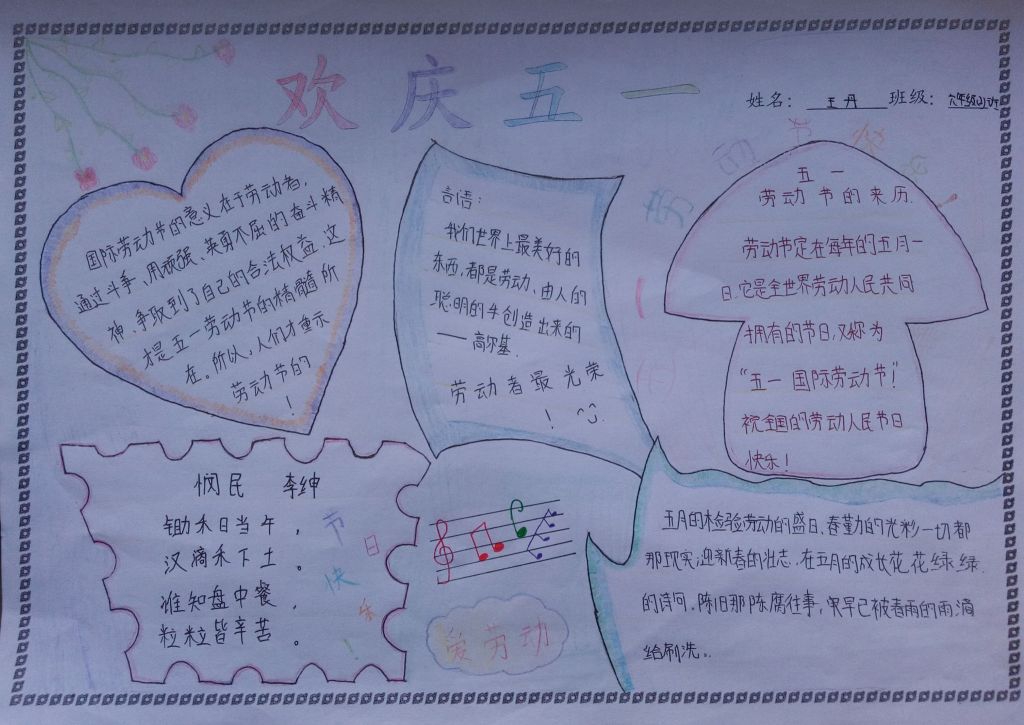 欢庆五一
姓名： 王丹 班级：
国际劳动节的意义在于劳动者，
通过斗争、用顽强、英勇不屈的奋斗精
神、争取到了自己的合法权益.这
才是五一劳动节的精髓所
在。所以，人们才重示
劳动节的
！
言语：
我们世界上最美好的
东西，都是劳动、由人的
聪明的手创造出来的
——高尔基.
劳动者最光荣
！
五一
劳动节的来历.
劳动节定在每年的五月一
日.它是全世界劳动人民共同
拥有的节日，又称为
“五一国际劳动节”！
祝全国的劳动人民节日
快乐！
悯民 李绅
锄禾日当午，
汉滴禾下土。
谁知盘中餐，
粒粒皆辛苦。
节
日
快
乐
！
爱劳动
五月的检验劳动的盛日、春勤的光彩一切都
那现实；迎新春的壮志.在五月的成长花花绿绿.
的诗间.陈旧那陈腐往事，早已被春雨的雨滴
给刷洗。